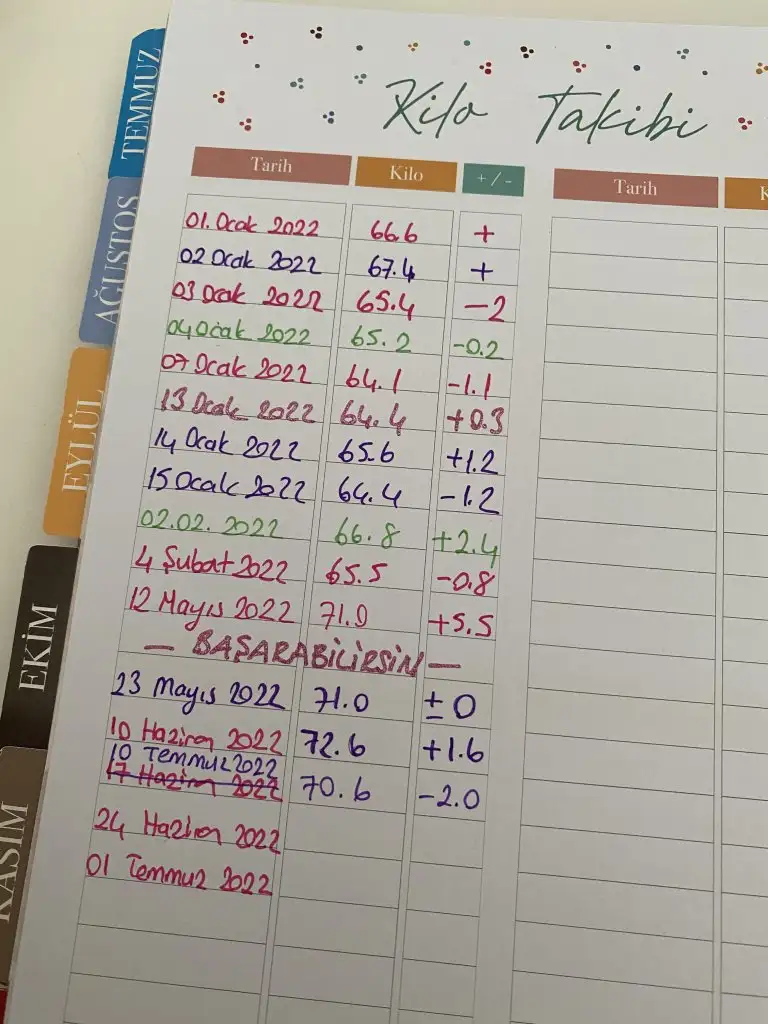 TEMMUZ
AĞUSTOS
EYLÜL
EKİM
KASIM
Kilo Takibi
Tarih Kilo +/- Tarih K
01. Ocak 2022 66.6 +
02 Ocak 2022 67.4 +
03 Ocak 2022 65.4 -2
04 Ocak 2022 65.2 -0.2
07 Ocak 2022 64.1 -1.1
13 Ocak 2022 64.4 +0.3
14 Ocak 2022 65.6 +1.2
15 Ocak 2022 64.4 -1.2
02.02. 2022 66.8 +2.4
4 Şubat 2022 65.5 -0.8
12 Mayıs 2022 71.0 +5.5
— BAŞARABİLİRSİN —
23 Mayıs 2022 71.0 ±0
10 Haziran 2022 72.6 +1.6
10 Temmuz 2022
17 Haziran 2022 70.6 -2.0
24 Haziran 2022
01 Temmuz 2022